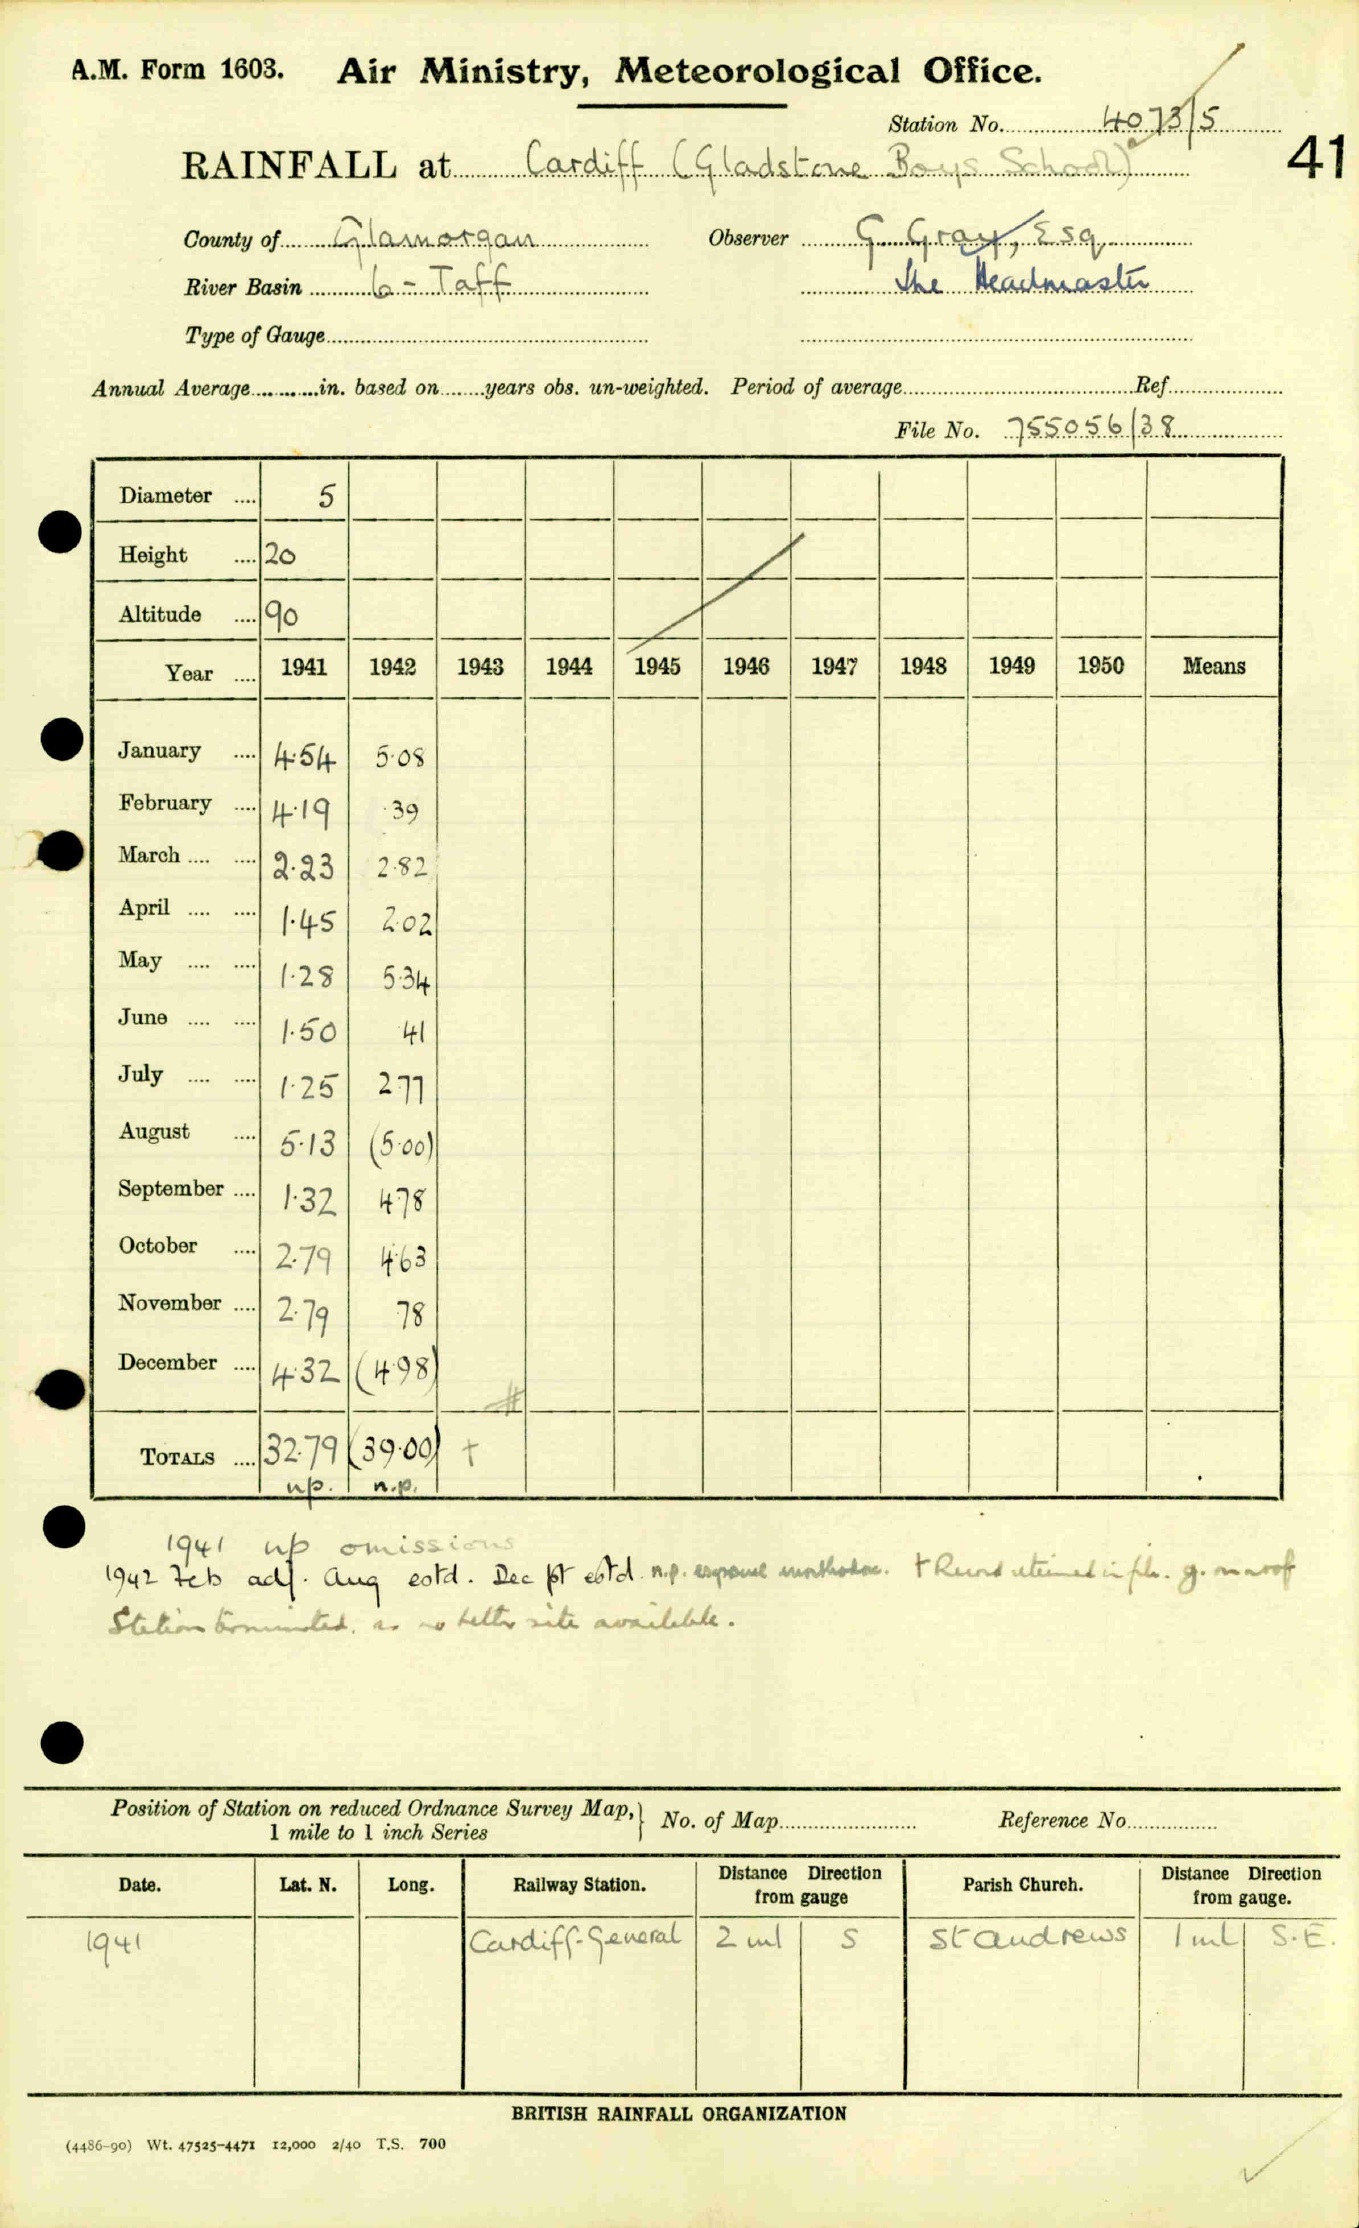 A.M. Form 1603. Air Ministry, Meteorological Office.
Station No. 4073/5
RAINFALL at Cardiff (Gladstone Boys School)
41
County of Glamorgan Observer G. Gray, Esq
River Basin 6 - Taff The Headmaster
Type of Gauge
Annual Average in. based on years obs. un-weighted. Period of average Ref
File No. 755056/38
Diameter .... 5
Height .... 20
Altitude .... 90
Year .... 1941 1942 1943 1944 1945 1946 1947 1948 1949 1950 Means
January .... 4.54 5.08
February .... 4.19 .39
March .... .... 2.23 2.82
April .... .... 1.45 2.02
May .... .... 1.28 5.34
June .... .... 1.50 41
July .... .... 1.25 2.77
August .... 5.13 (5.00)
September .... 1.32 4.78
October .... 2.79 4.63
November .... 2.79 78
December .... 4.32 (4.98)
TOTALS .... 32.79 (39.00) †
n.p. n.p.
1941 np omissions
1942 Feb adj. Aug estd. Dec pt estd n.p. † Record retained in file. g. on roof
Station terminated, as no better site available.
Position of Station on reduced Ordnance Survey Map, } No. of Map Reference No.
1 mile to 1 inch Series
Date. Lat. N. Long. Railway Station. Distance Direction from gauge Parish Church. Distance Direction from gauge.
1941 Cardiff-General 2 ml S St Andrews 1 ml S.E.
BRITISH RAINFALL ORGANIZATION
(4486-90) Wt. 47525-4471 12,000 2/40 T.S. 700